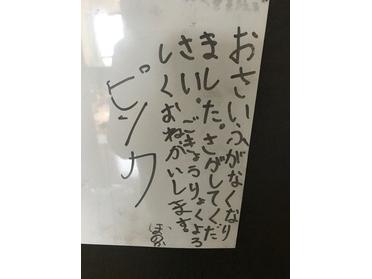 おさいふがなくなり
ました。さがしてくだ
さい。ごきょうりょくよろ
しくおねがいします。
ピンク
ほのか